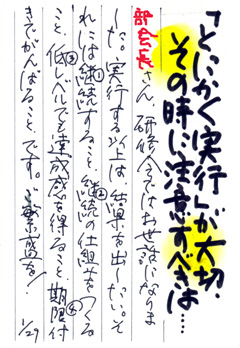 「とにかく実行」が大切.
その時に注意すべきは…
部会長さん、研修会ではお世話になりま
した。実行する以上は、結果を出したい。そ
れには①継続すること、②継続の仕組をつくる
こと、③低レベルでも達成感を得ること、④期限付
きでがんばること、です。ご繁盛を!
1/29